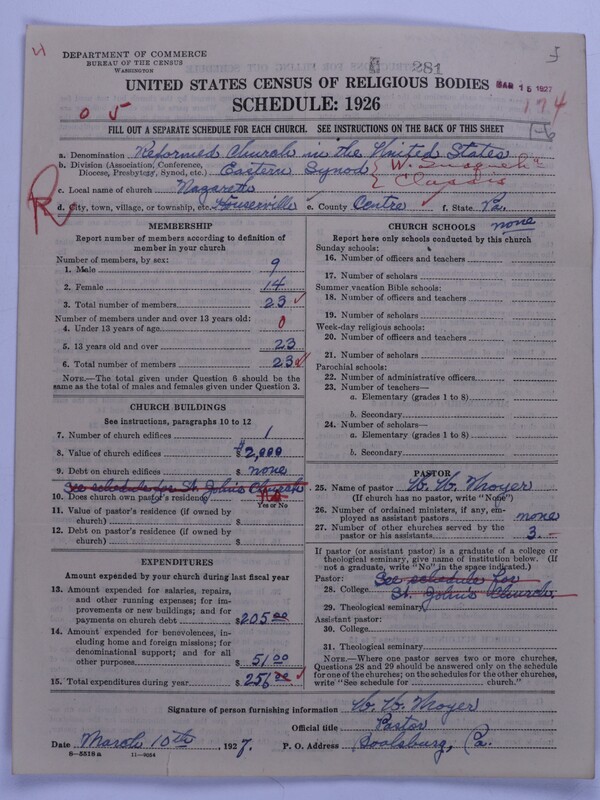 DEPARTMENT OF COMMERCE
BUREAU OF THE CENSUS
WASHINGTON
281
UNITED STATES CENSUS OF RELIGIOUS BODIES
MAR 15 1927
SCHEDULE: 1926
174
0 5
FILL OUT A SEPARATE SCHEDULE FOR EACH CHURCH. SEE INSTRUCTIONS ON THE BACK OF THIS SHEET
a. Denomination Reformed Church in the United States
b. Division (Association, Conference, Diocese, Presbytery, Synod, etc.) Eastern Synod { W. Susqueh
Classis
c. Local name of church Nazareth
d. City, town, village, or township, etc. Houserville e. County Centre f. State Pa.
MEMBERSHIP
Report number of members according to definition of
member in your church
Number of members, by sex:
1. Male 9
2. Female 14
3. Total number of members 23
Number of members under and over 13 years old:
4. Under 13 years of age 0
5. 13 years old and over 23
6. Total number of members 23
NOTE.—The total given under Question 6 should be the
same as the total of males and females given under Question 3.
CHURCH BUILDINGS
See instructions, paragraphs 10 to 12
7. Number of church edifices 1
8. Value of church edifices $2,000
9. Debt on church edifices $ none
See schedule for St. John's Church
10. Does church own pastor's residence? No
Yes or No
11. Value of pastor's residence (if owned by
church) $
12. Debt on pastor's residence (if owned by
church) $
EXPENDITURES
Amount expended by your church during last fiscal year
13. Amount expended for salaries, repairs,
and other running expenses; for im-
provements or new buildings; and for
payments on church debt $205 00
14. Amount expended for benevolences, in-
cluding home and foreign missions; for
denominational support; and for all
other purposes $ 51 00
15. Total expenditures during year $ 256 00
CHURCH SCHOOLS none
Report here only schools conducted by this church
Sunday schools:
16. Number of officers and teachers
17. Number of scholars
Summer vacation Bible schools:
18. Number of officers and teachers
19. Number of scholars
Week-day religious schools:
20. Number of officers and teachers
21. Number of scholars
Parochial schools:
22. Number of administrative officers
23. Number of teachers—
a. Elementary (grades 1 to 8)
b. Secondary
24. Number of scholars—
a. Elementary (grades 1 to 8)
b. Secondary
PASTOR
25. Name of pastor W. W. Moyer
(If church has no pastor, write "None")
26. Number of ordained ministers, if any, em-
ployed as assistant pastors none
27. Number of other churches served by the
pastor or his assistants 3
If pastor (or assistant pastor) is a graduate of a college or
theological seminary, give name of institution below. (If
not a graduate, write "No" in the space indicated.)
Pastor: See schedule for
28. College St. John's Church
29. Theological seminary
Assistant pastor:
30. College
31. Theological seminary
NOTE.—Where one pastor serves two or more churches,
Questions 28 and 29 should be answered only on the schedule
for one of the churches; on the schedules for the other churches,
write "See schedule for church."
Signature of person furnishing information W. W. Moyer
Official title Pastor
Date March 10th, 1927. P. O. Address Boalsburg, Pa.
8—5518 a 11—9034